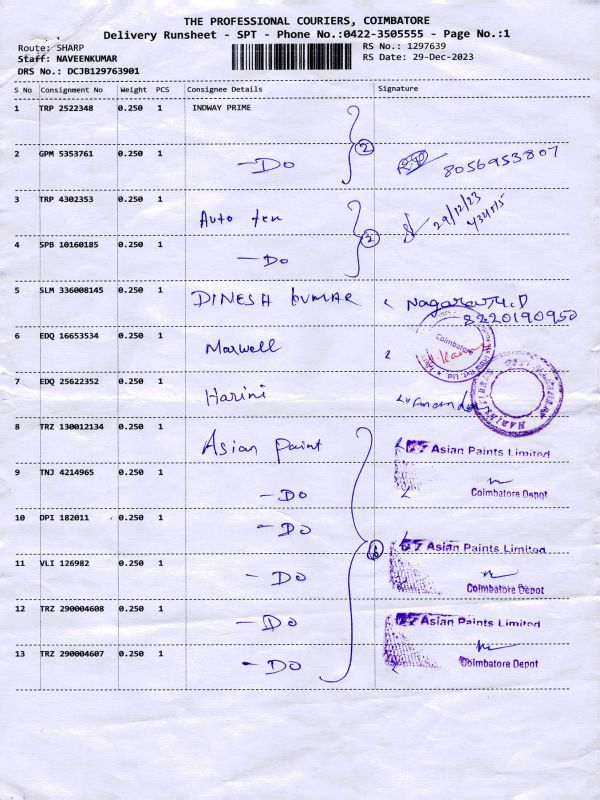 THE PROFESSIONAL COURIERS, COIMBATORE
Delivery Runsheet - SPT - Phone No.:0422-3505555 - Page No.:1
Route: SHARP
RS No.: 1297639
Staff: NAVEENKUMAR
RS Date: 29-Dec-2023
DRS No.: DCJB129763901
S No Consignment No Weight PCS Consignee Details Signature
1 TRP 2522348 0.250 1 INDWAY PRIME
2 GPM 5353761 0.250 1 - Do 2 8056953807
3 TRP 4302353 0.250 1 Auto ten 29/12/23
4 SPB 10160185 0.250 1 - Do 2
5 SLM 336008145 0.250 1 DINESH KUMAR
8220190950
6 EDQ 16653534 0.250 1 Marwell Coimbatore
7 EDQ 25622352 0.250 1 Harini
8 TRZ 130012134 0.250 1 Asian Paint Asian Paints Limited
9 TNJ 4214965 0.250 1 - Do Coimbatore Depot
10 DPI 182011 0.250 1 - Do
Asian Paints Limited
11 VLI 126982 0.250 1 - Do Coimbatore Depot
12 TRZ 290004608 0.250 1 - Do Asian Paints Limited
13 TRZ 290004607 0.250 1 - Do Coimbatore Depot